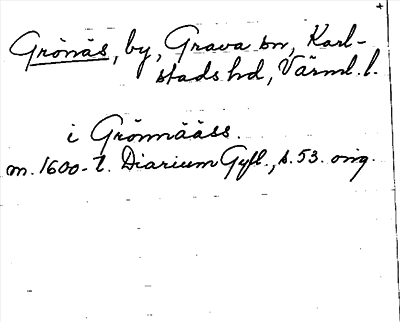 Grönäs, by, Grava sn, Karl-
stads hd, Värml. l.
i Grönnääss.
m. 1600-t. Diarium Gyll., s. 53. orig.